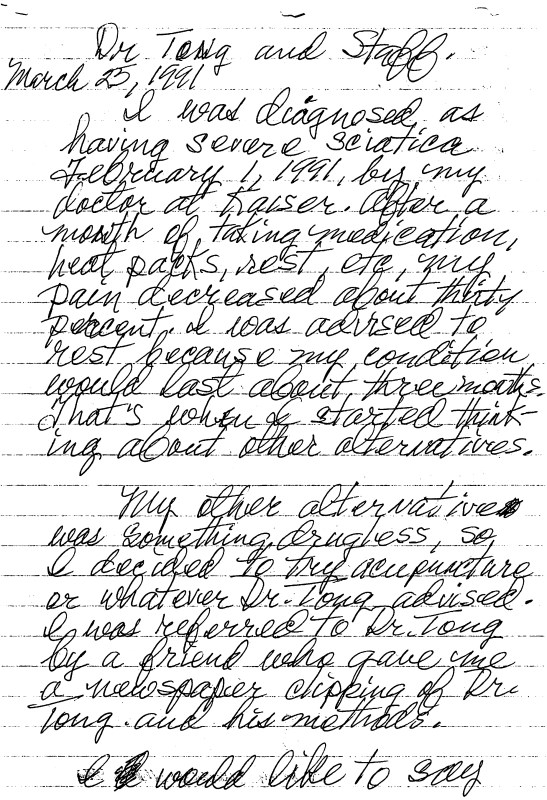 Dr Tong and Staff.
March 25, 1991
I was diagnosed as
having severe sciatica
February 1, 1991, by my
doctor at Kaiser. After a
month of taking medication,
heat packs, rest, etc, my
pain decreased about thirty
percent. I was advised to
rest because my condition
would last about three months.
That's when I started think-
ing about other alternatives.
My other alternative
was something drugless, so
I decided to try acupuncture
or whatever Dr. Tong advised.
I was referred to Dr. Tong
by a friend who gave me
a newspaper clipping of Dr.
Tong and his methods.
I would like to say